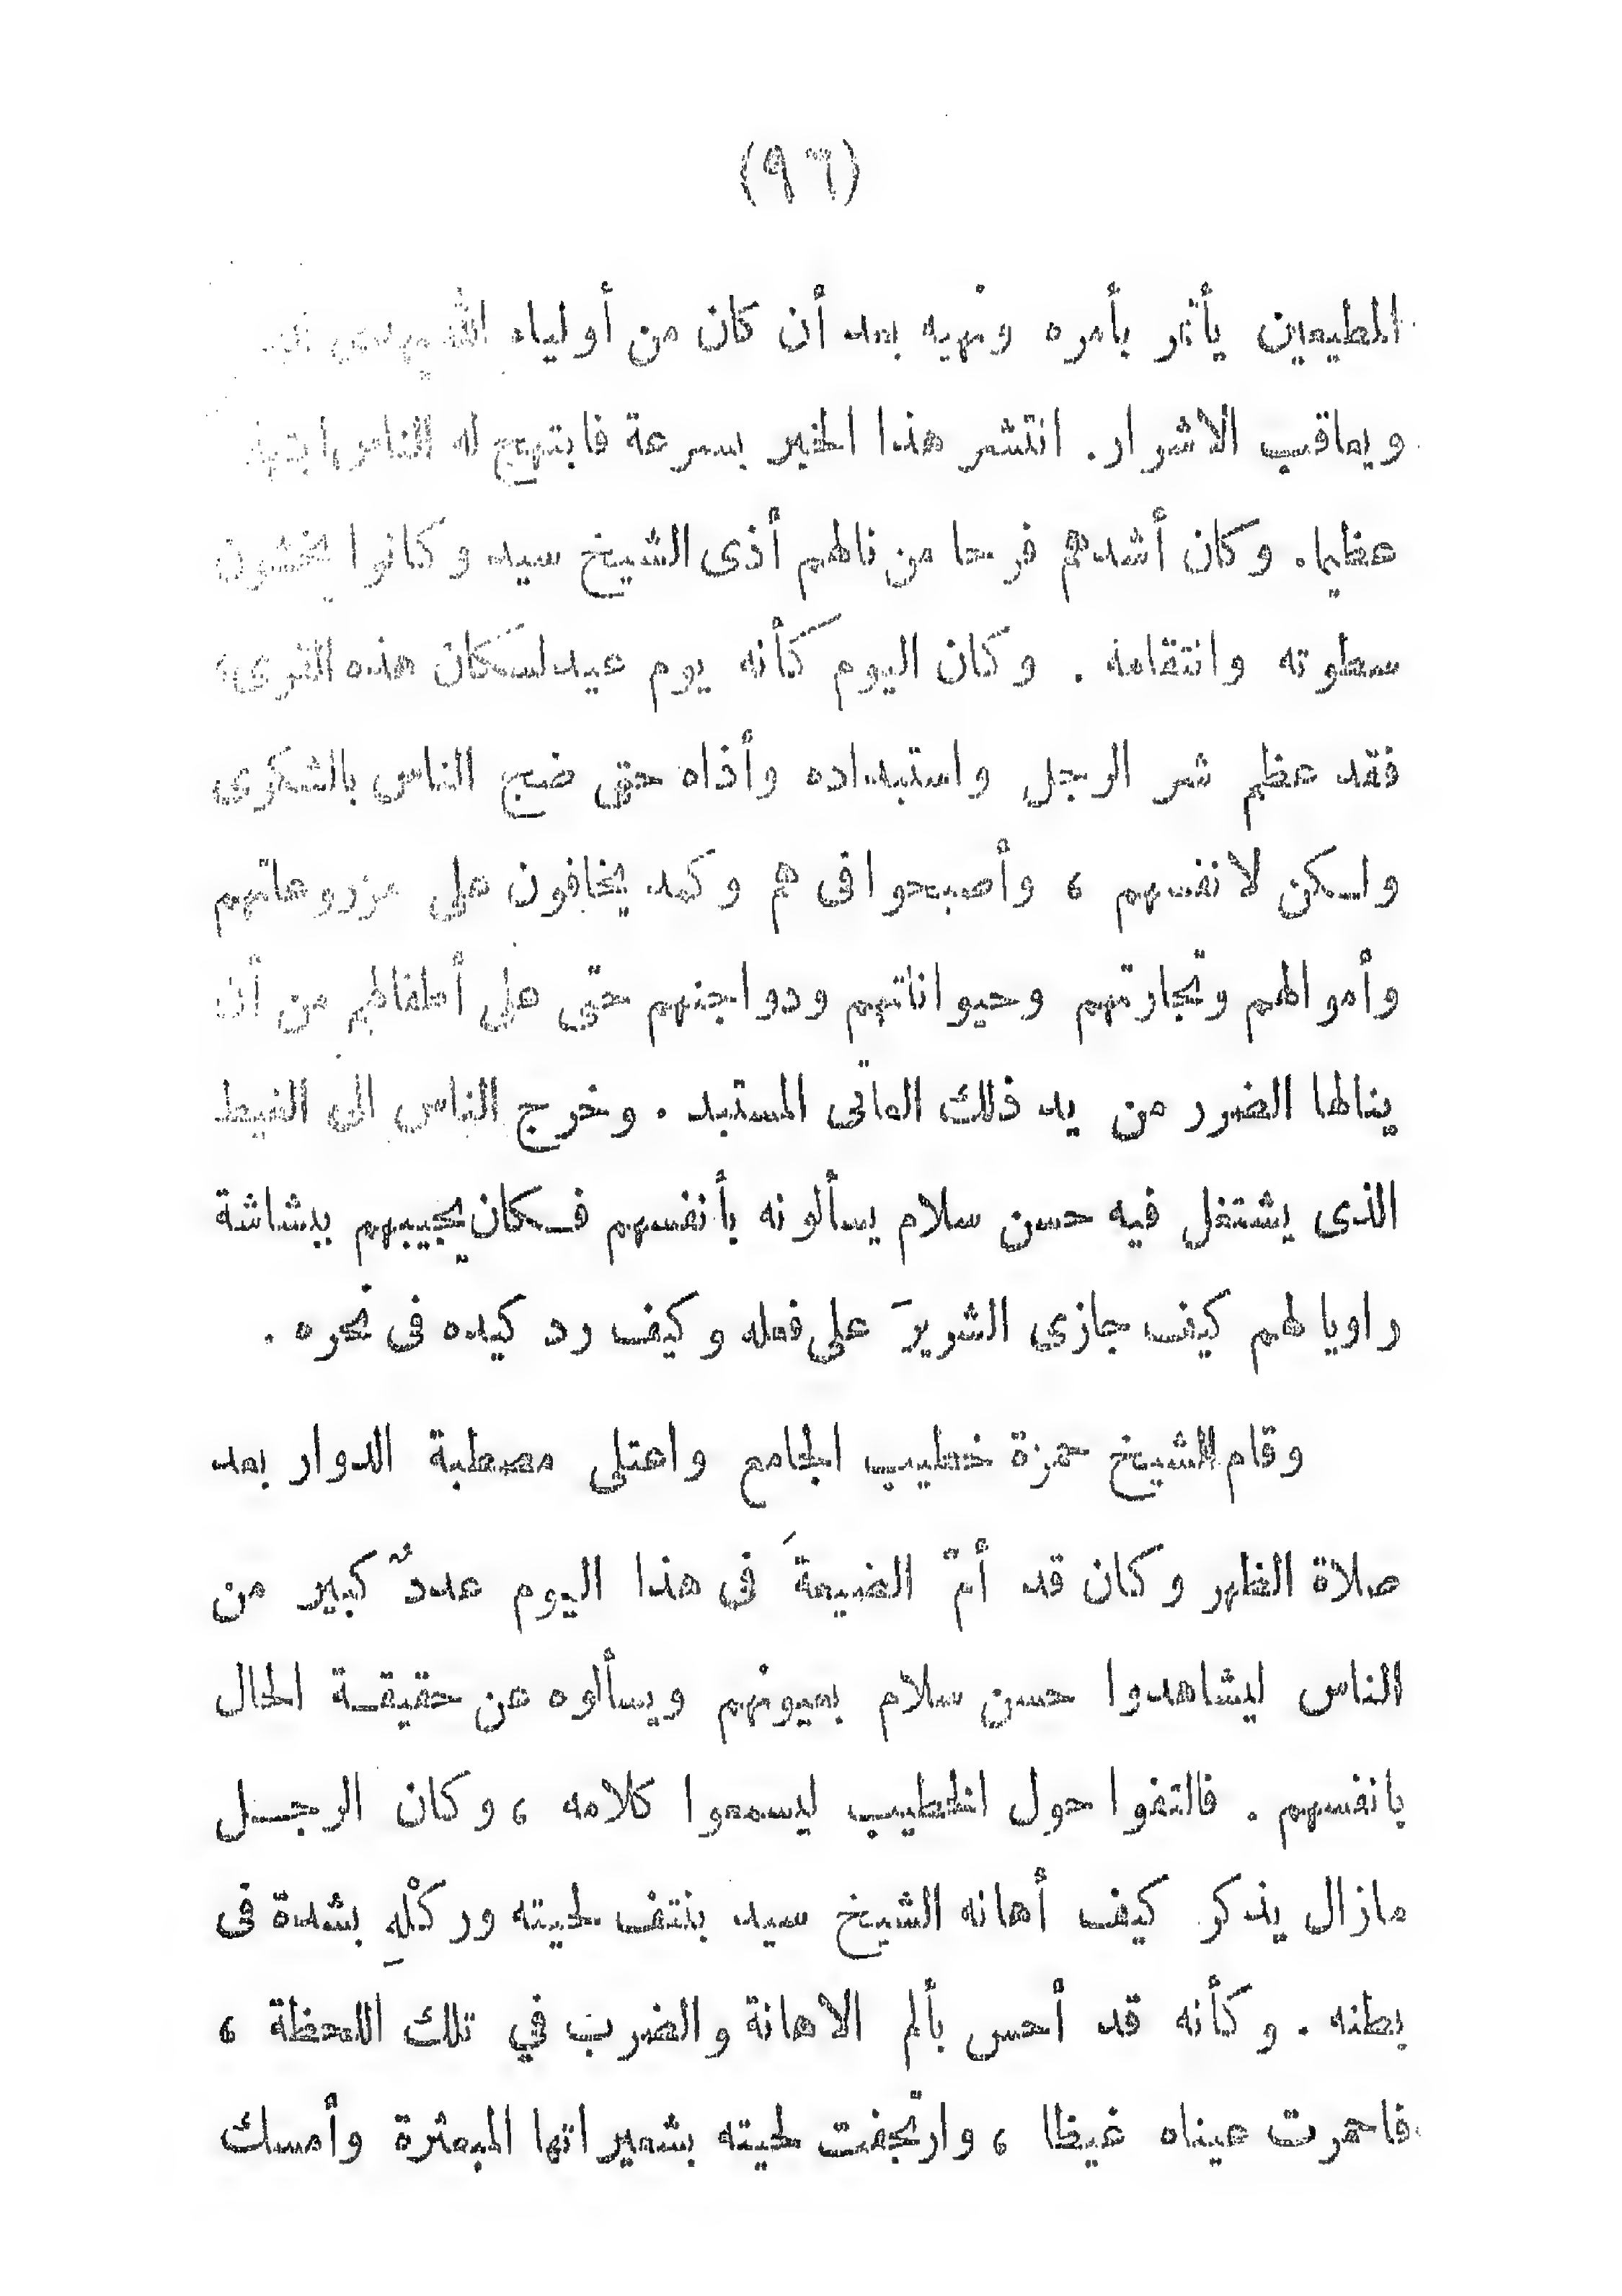 (٩٦)
المطيعين يأتمر بأمره ونهيه بعد أن كان من أولياء الله
ويعاقب الاشرار. انتشر هذا الخبر بسرعة فابتهج له الناس
عظيما. وكان أشدهم فرحا من نالهم أذى الشيخ سيد وكانوا يخشون
سطوته وانتقامه . وكان اليوم كأنه يوم عيد لسكان هذه القرى،
فقد عظم شر الرجل واستبداده وأذاه حتى ضج الناس بالشكوى
ولكن لانفسهم ، وأصبحوا فى هم وكمد يخافون على مزروعاتهم
وأموالهم وتجارتهم وحيواناتهم ودواجنهم حتى على أطفالهم من أن
ينالها الضرر من يد ذلك العاتى المستبد . وخرج الناس الى الغيط
الذى يشتغل فيه حسن سلام يسألونه بأنفسهم فكان يجيبهم ببشاشة
راويا لهم كيف جازى الشريرَ على فعله وكيف رد كيده فى نحره .
وقام الشيخ حمزة خطيب الجامع واعتلى مصطبة الدوار بعد
صلاة الظهر وكان قد أمّ الضيعةَ فى هذا اليوم عددٌ كبير من
الناس ليشاهدوا حسن سلام بعيونهم ويسألوه عن حقيقة الحال
بانفسهم . فالتفوا حول الخطيب ليسمعوا كلامه ، وكان الرجل
مازال يذكر كيف أهانه الشيخ سيد بنتف لحيته وركْلهِ بشدة فى
بطنه . وكأنه قد أحس بألم الاهانة والضرب في تلك اللحظة ،
فاحمرت عيناه غيظا ، وارتجفت لحيته بشعيراتها المبعثرة وأمسك